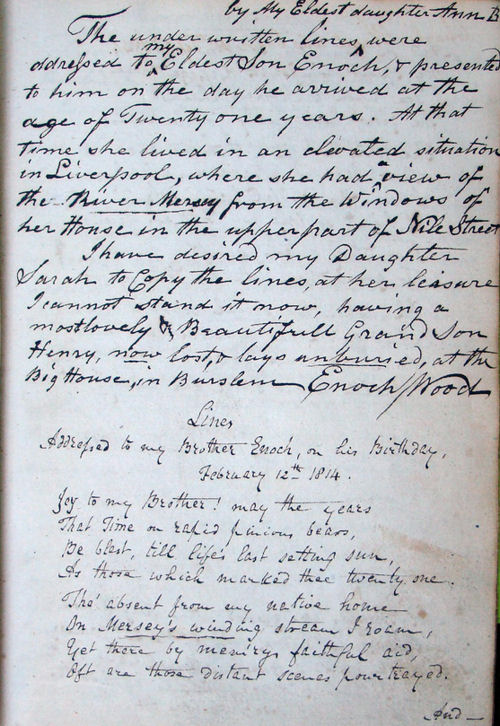 by My Eldest daughter Ann B
The under written lines, were
addressed to my Eldest Son Enoch, & presented
to him on the day he arrived at the
age of Twenty one years. At that
time she lived in an elevated situation
in Liverpool, where she had a view of
the River Mersey from the Windows of
her House in the upper part of Nile Street
I have desired my Daughter
Sarah to Copy the lines, at her leisure
I cannot stand it now, having a
most lovely & Beautifull Grand Son
Henry, now lost, & lays unburied, at the
Big House, in Burslem Enoch Wood
Lines
Addressed to my Brother Enoch, on his Birthday,
February 12th 1814.
Joy to my Brother! may the years
That Time on rapid pinions bears,
Be blest, till life's last setting sun,
As those which marked thee twenty one.
Tho' absent from my native home
On Mersey's winding stream I roam,
Yet there by mem'rys faithful aid,
Oft are those distant scenes pourtrayed.
And